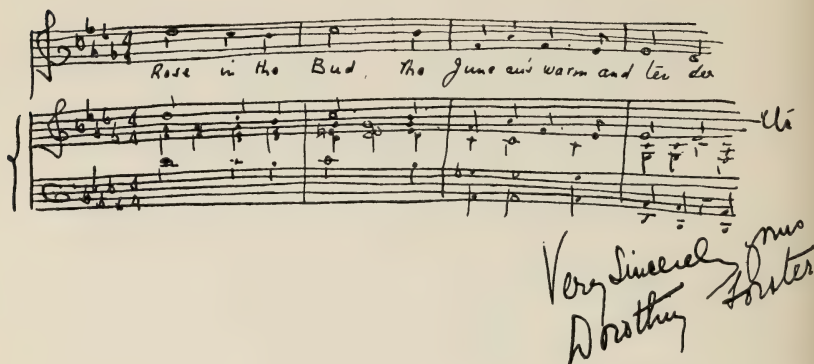 4 4
Rose in the Bud, The June air's warm and ten der
4 4
4 4
Very Sincerely yours
Dorothy Forster